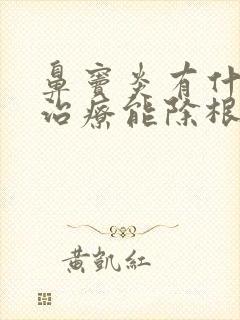 鼻窦炎有什
治療能除根
黃凱紅